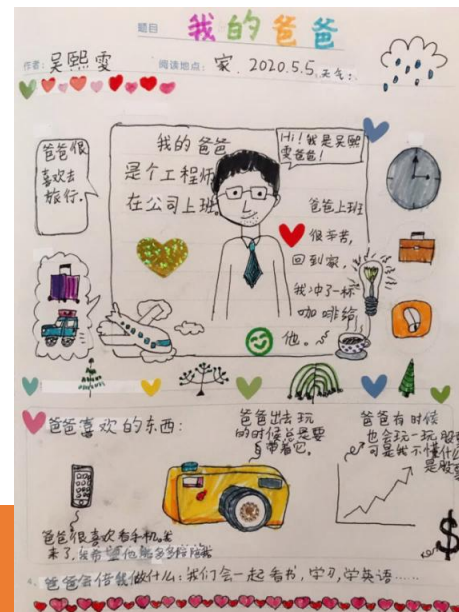 题目 我的爸爸
作者: 吴熙雯 阅读地点: 家. 2020.5.5. 天气:
爸爸很
喜欢去
旅行。
我的爸爸
是个工程师
在公司上班。
Hi!我是吴熙
雯爸爸!
爸爸上班
很辛苦,
回到家,
我冲了一杯
咖啡给
他。
爸爸喜欢的东西:
爸爸出去玩
的时候总是要
自带着它。
爸爸有时候
也会玩一玩股
可是我不懂什么
是股票
爸爸很喜欢看手机。
来了,我希望他能多多陪陪我
爸爸会陪我做什么:我们会一起看书,学习,学英语......
$